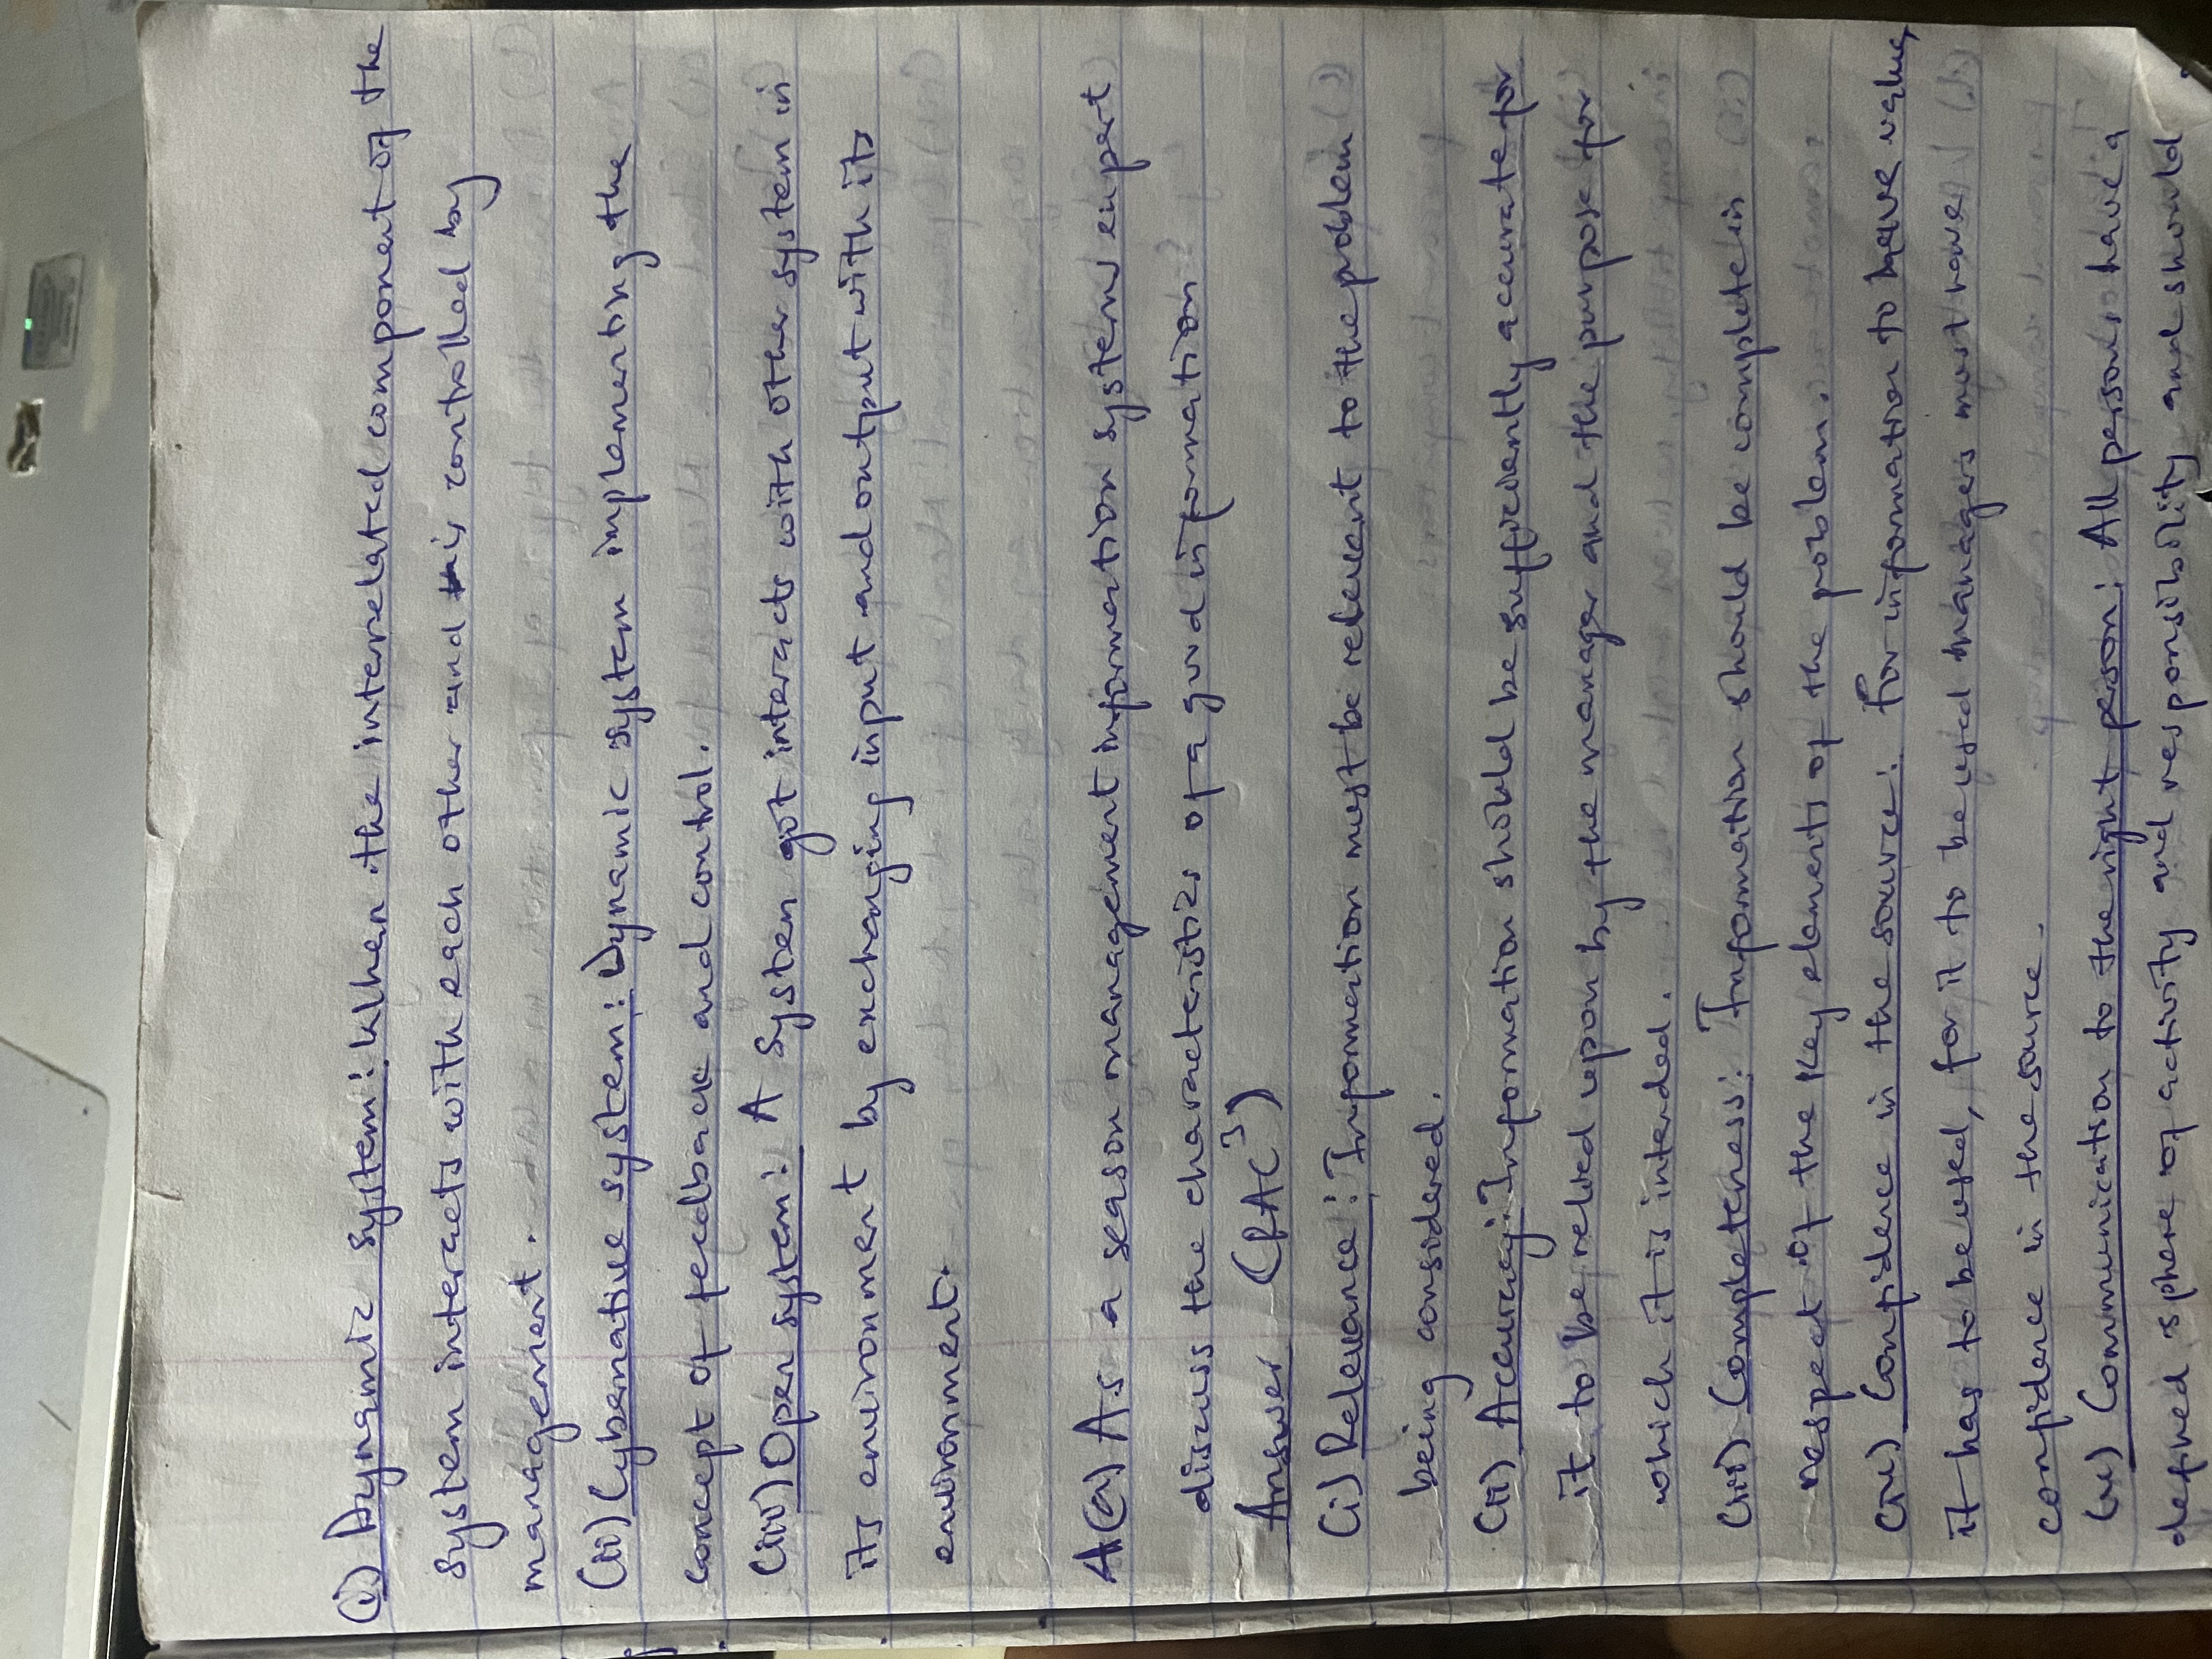 (i) Dynamic system: When the interrelated component of the
system interacts with each other and is controlled by
management.
(ii) Cybernative system: Dynamic system implementing the
concept of feedback and control.
(iii) Open system: A system got interacts with other system in
its environment by exchanging input and output with its
environment.
4(a) As a season management information systems expert
discuss the characteristics of a good information
Answer (RAC³)
(i) Relevance: Information must be relevant to the problem
being considered.
(ii) Accuracy: Information should be sufficiently accurate for
it to be relied upon by the manager and the purpose for
which it is intended.
(iii) Completeness: Information should be complete in
respect of the key elements of the problem.
(iv) Confidence in the source: For information to have value,
it has to be used, for it to be used managers must have
confidence in the source.
(v) Communication to the right person: All persons have a
defined sphere of activity and responsibility and should